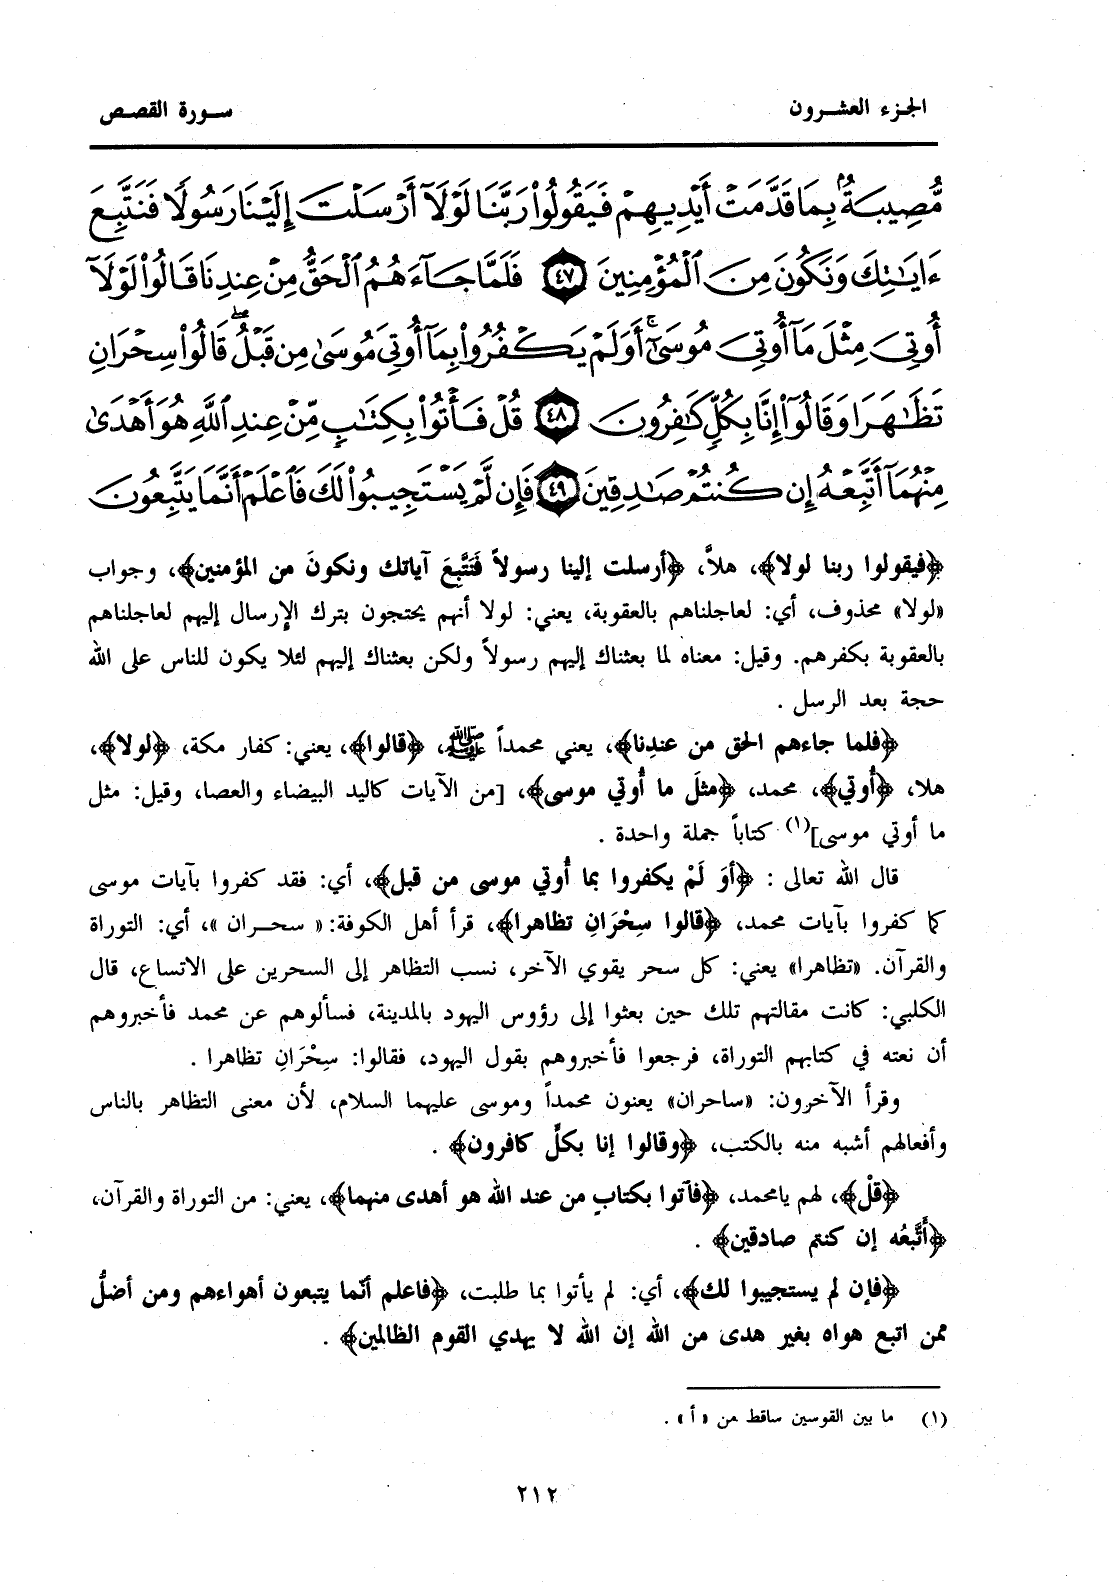 الجزء العشرون
سورة القصص
مُّصِيبَةُۢ بِمَا قَدَّمَتْ أَيْدِيهِمْ فَيَقُولُواْ رَبَّنَا لَوْلَآ أَرْسَلْتَ إِلَيْنَا رَسُولًا فَنَتَّبِعَ
ءَايَٰتِكَ وَنَكُونَ مِنَ ٱلْمُؤْمِنِينَ ٤٧ فَلَمَّا جَآءَهُمُ ٱلْحَقُّ مِنْ عِندِنَا قَالُواْ لَوْلَآ
أُوتِىَ مِثْلَ مَآ أُوتِىَ مُوسَىٰٓ ۚ أَوَلَمْ يَكْفُرُواْ بِمَآ أُوتِىَ مُوسَىٰ مِن قَبْلُ ۖ قَالُواْ سِحْرَانِ
تَظَٰهَرَا وَقَالُوٓاْ إِنَّا بِكُلٍّ كَٰفِرُونَ ٤٨ قُلْ فَأْتُواْ بِكِتَٰبٍ مِّنْ عِندِ ٱللَّهِ هُوَ أَهْدَىٰ
مِنْهُمَآ أَتَّبِعْهُ إِن كُنتُمْ صَٰدِقِينَ ٤٩ فَإِن لَّمْ يَسْتَجِيبُواْ لَكَ فَٱعْلَمْ أَنَّمَا يَتَّبِعُونَ
﴿فيقولوا ربنا لولا﴾، هلاَّ، ﴿أرسلت إلينا رسولاً فَنَتَّبِعَ آياتك ونكونَ من المؤمنين﴾، وجواب
«لولا» محذوف، أي: لعاجلناهم بالعقوبة، يعني: لولا أنهم يحتجون بترك الإرسال إليهم لعاجلناهم
بالعقوبة بكفرهم. وقيل: معناه لما بعثناك إليهم رسولاً ولكن بعثناك إليهم لئلا يكون للناس على الله
حجة بعد الرسل .
﴿فلما جاءهم الحق من عندِنا﴾، يعني محمداً ﷺ، ﴿قالوا﴾، يعني: كفار مكة، ﴿لولا﴾،
هلا، ﴿أُوتي﴾، محمد، ﴿مثلَ ما أُوتي موسى﴾، [من الآيات كاليد البيضاء والعصا، وقيل: مثل
ما أوتي موسى](١) كتاباً جملة واحدة .
قال الله تعالى : ﴿أوَ لَمْ يكفروا بما أُوتي موسى من قبل﴾، أي: فقد كفروا بآيات موسى
كما كفروا بآيات محمد، ﴿قالوا سِحْرَانِ تظاهرا﴾، قرأ أهل الكوفة: « سحران »، أي: التوراة
والقرآن. «تظاهرا» يعني: كل سحر يقوي الآخر، نسب التظاهر إلى السحرين على الاتساع، قال
الكلبي: كانت مقالتهم تلك حين بعثوا إلى رؤوس اليهود بالمدينة، فسألوهم عن محمد فأخبروهم
أن نعته في كتابهم التوراة، فرجعوا فأخبروهم بقول اليهود، فقالوا: سِحْرَانِ تظاهرا .
وقرأ الآخرون: «ساحران» يعنون محمداً وموسى عليهما السلام، لأن معنى التظاهر بالناس
وأفعالهم أشبه منه بالكتب، ﴿وقالوا إنا بكلٍّ كافرون﴾ .
﴿قلْ﴾، لهم يامحمد، ﴿فآتوا بكتابٍ من عند الله هو أهدى منهما﴾، يعني: من التوراة والقرآن،
﴿أَتَّبعُه إن كنتم صادقين﴾ .
﴿فإن لم يستجيبوا لك﴾، أي: لم يأتوا بما طلبت، ﴿فاعلم أنّما يتبعون أهواءهم ومن أضلُّ
ممن اتبع هواه بغير هدى من الله إن الله لا يهدي القوم الظالمين﴾ .
(١) ما بين القوسين ساقط من « أ » .
٢١٢